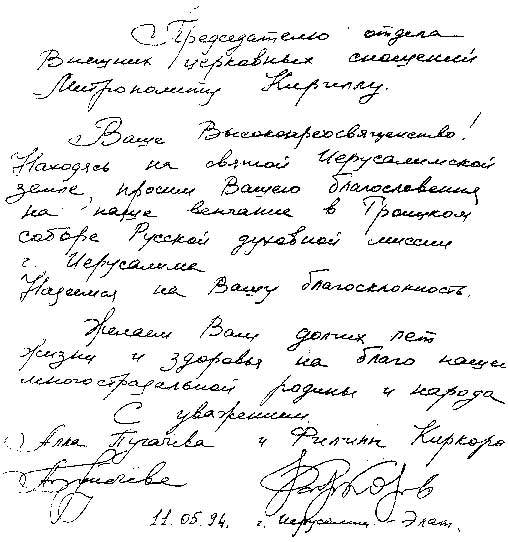 Председателю отдела
Внешних церковных сношений
Митрополиту Кириллу.
Ваше Высокопреосвященство!
Находясь на святой Иерусалимской
земле просим Вашего благословения
на наше венчание в Троицком
соборе Русской духовной миссии
г. Иерусалима
Надеемся на Вашу благосклонность.
Желаем Вам долгих лет
жизни и здоровья на благо нашей
многострадальной родины и народа
С уважением
Алла Пугачёва и Филипп Киркоро
АПугачёва Киркоров
11.05.94. г. Иерусалим - Элат.